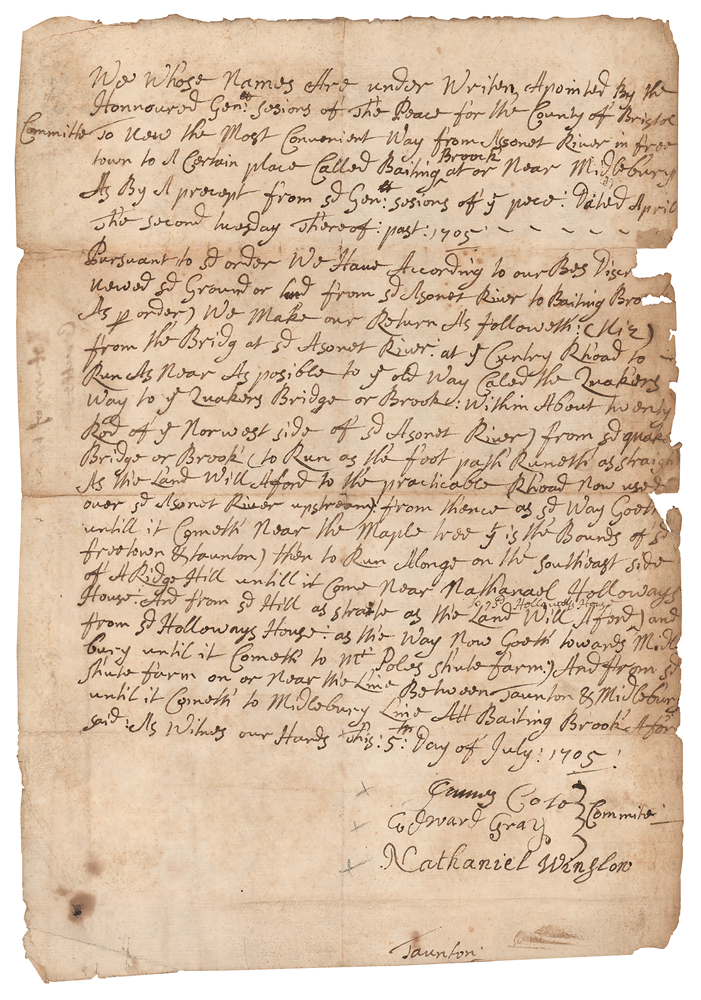 We Whose Names Are under Writen, Apointed By the
Honnoured Gen:ll Sesions of The Peace for the County of Bristol
Committe To vew the Most Convenient Way from Assonet River in free
town to A Certain place Called Baiting Brook at or Near Middlebury
As By A precept from sd Gen:ll sesions of ye pece: Dated April
The second tuesday Thereof: past: 1705
Pursuant to sd order We Have According to our Bes Discr
vewed sd Ground or land from sd Asonet River to Baiting Broo
As pr order) We Make our Return As followeth: (Viz)
from the Bridg at sd Asonet River: at ye Cuntry Rhoad to
Run As Near As posible to ye old Way Caled the Quakers
Way to ye Quakers Bridge or Brook: Within About twenty
Rod of ye Norwest side of sd Asonet River) from sd quak
Bridge or Brook (to Run as the foot path Runeth as straigh
As the Land Will Aford to the practicable Rhoad Now used
over sd Asonet River upstream): from thence as sd Way Goeth
untill it Cometh Near the Maple tree yt is the Bounds of sd
freetown & taunton) then to Run Alonge on the southeast side
of A Ridge Hill untill it Come Near Nathanael Holloways
House: And from sd Hill as straite as the Land Will Aford) and
to sd Holloways House
from sd Holloways House: as the Way Now Goeth towards Midl
bury until it Cometh to Mr Poles shute farm:) And from sd
shute farm on or Near the Line Between Taunton & Midlebury
until it Cometh to Midlebury Line Att Baiting Brook Afor
said: As Witnes our Hands This: 5:th Day of July: 1705:
James Cole
Edward Gray Committe:
Nathaniel Winslow
Taunton: